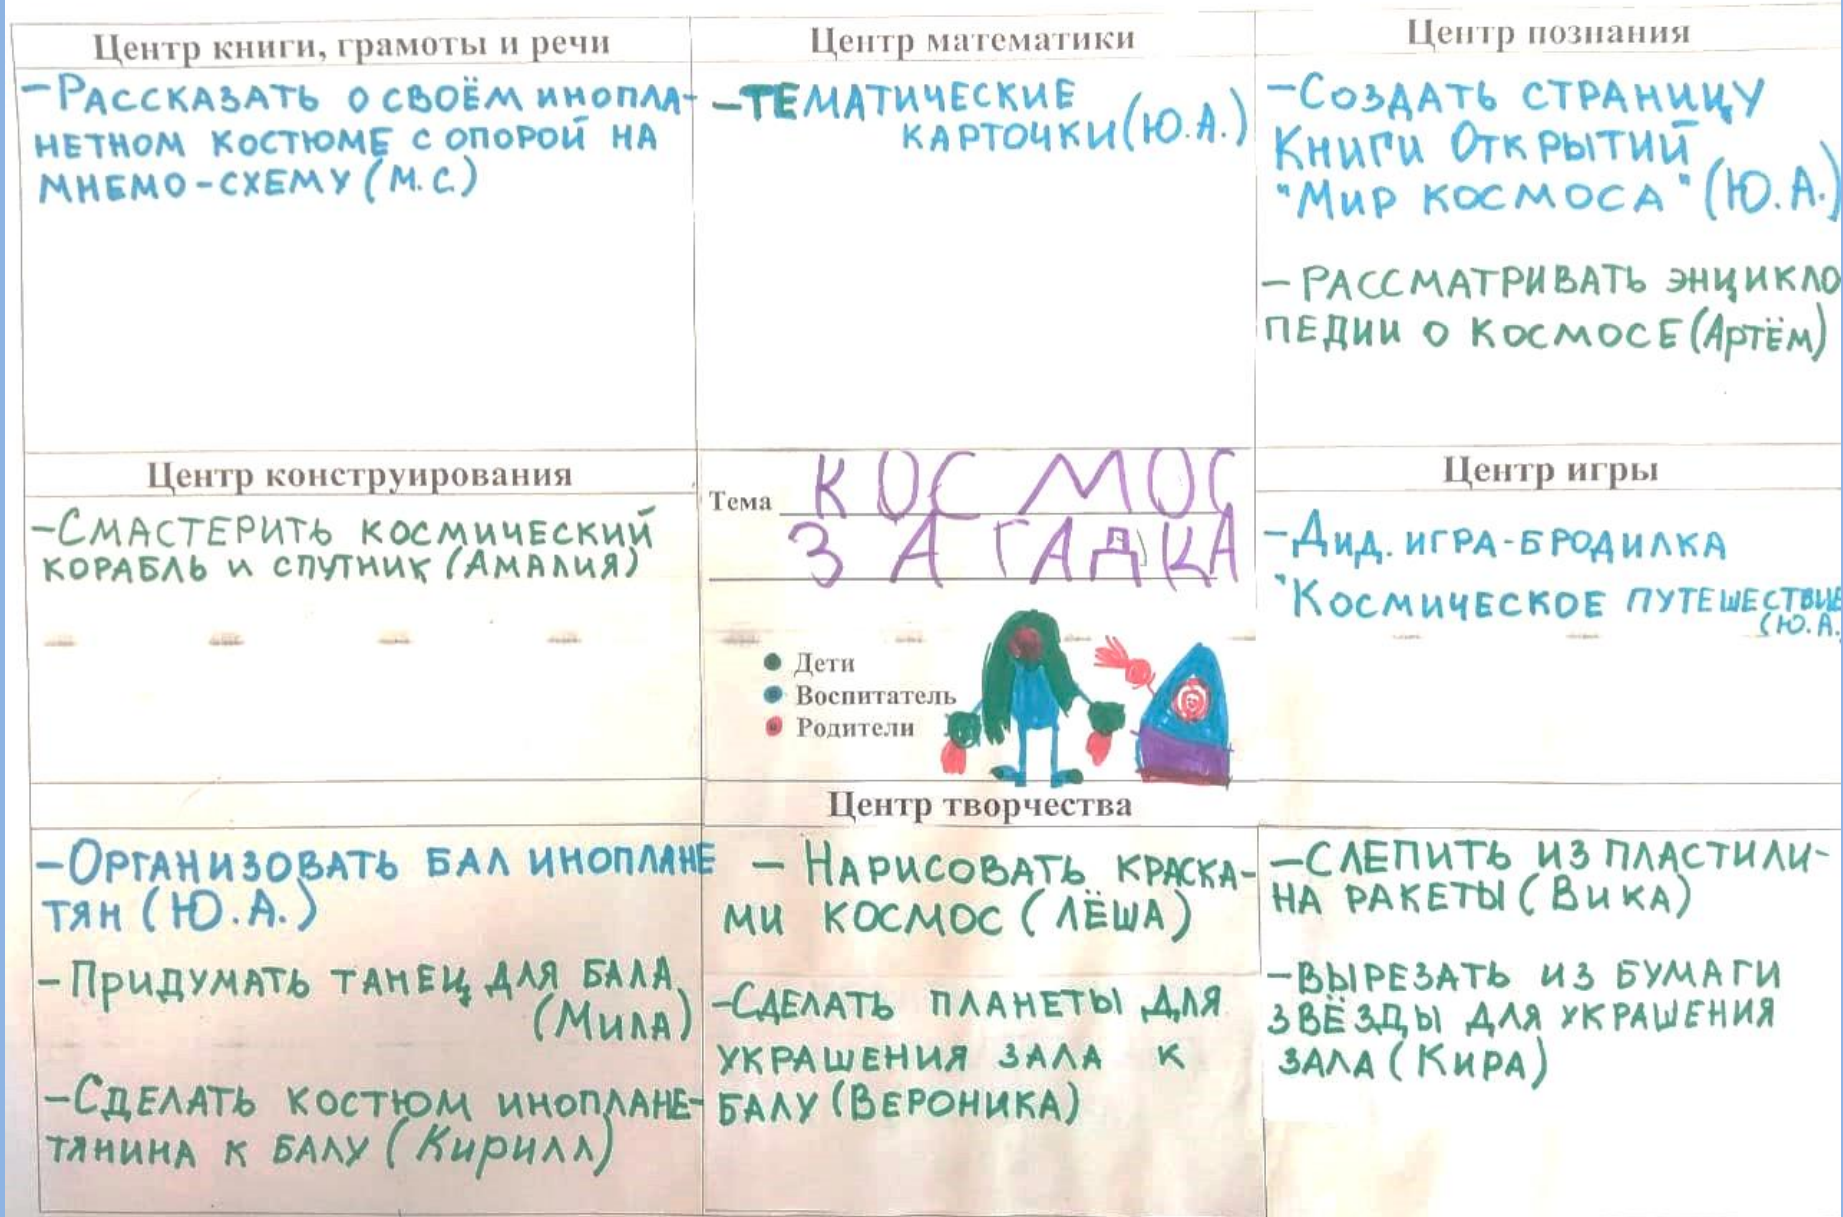 Центр книги, грамоты и речи
-РАССКАЗАТЬ О СВОЁМ ИНОПЛА-
НЕТНОМ КОСТЮМЕ С ОПОРОЙ НА
МНЕМО-СХЕМУ (М.С.)
Центр математики
-ТЕМАТИЧЕСКИЕ
КАРТОЧКИ (Ю.А.)
Центр познания
-СОЗДАТЬ СТРАНИЦУ
КНИГИ ОТКРЫТИЙ
"МИР КОСМОСА" (Ю.А.)
- РАССМАТРИВАТЬ ЭНЦИКЛО
ПЕДИИ О КОСМОСЕ (АРТЁМ)
Центр конструирования
-СМАСТЕРИТЬ КОСМИЧЕСКИЙ
КОРАБЛЬ И СПУТНИК (АМАЛИЯ)
Тема КОСМОС
ЗАГАДКА
● Дети
● Воспитатель
● Родители
Центр игры
-ДИД. ИГРА-БРОДИЛКА
"КОСМИЧЕСКОЕ ПУТЕШЕСТВИЕ
(Ю.А.
Центр творчества
-ОРГАНИЗОВАТЬ БАЛ ИНОПЛАНЕ
ТЯН (Ю.А.)
-ПРИДУМАТЬ ТАНЕЦ ДЛЯ БАЛА
(МИЛА)
-СДЕЛАТЬ КОСТЮМ ИНОПЛАНЕ-
ТЯНИНА К БАЛУ (КИРИЛЛ)
- НАРИСОВАТЬ КРАСКА-
МИ КОСМОС (ЛЁША)
-СДЕЛАТЬ ПЛАНЕТЫ ДЛЯ
УКРАШЕНИЯ ЗАЛА К
БАЛУ (ВЕРОНИКА)
-СЛЕПИТЬ ИЗ ПЛАСТИЛИ-
НА РАКЕТЫ (ВИКА)
-ВЫРЕЗАТЬ ИЗ БУМАГИ
ЗВЁЗДЫ ДЛЯ УКРАШЕНИЯ
ЗАЛА (КИРА)